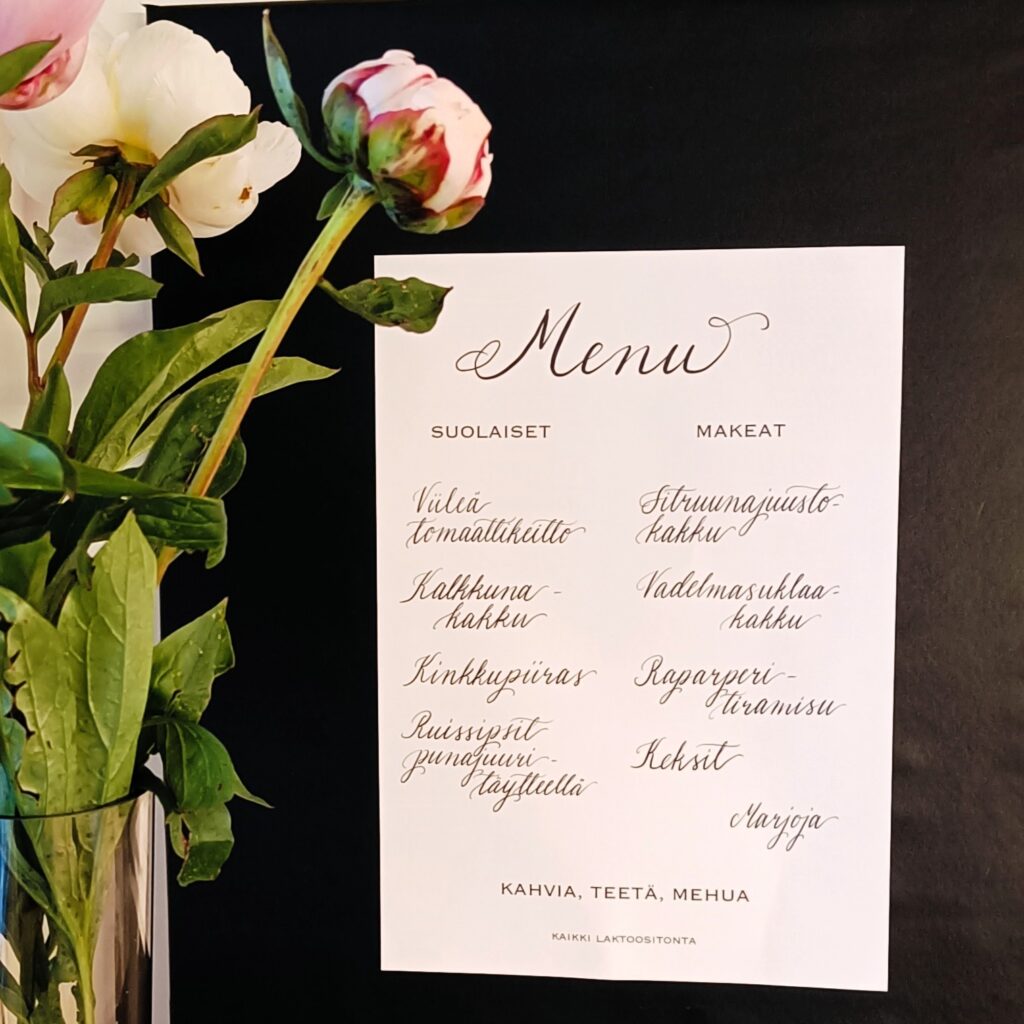 Menu
SUOLAISET
Viileä
tomaattikeitto
Kalkkuna-
kakku
Kinkkupiiras
Ruissipsit
punajuuri-
täytteellä
MAKEAT
Sitruunajuusto-
kakku
Vadelmasuklaa-
kakku
Raparperi-
tiramisu
Keksit
Marjoja
KAHVIA, TEETÄ, MEHUA
KAIKKI LAKTOOSITONTA